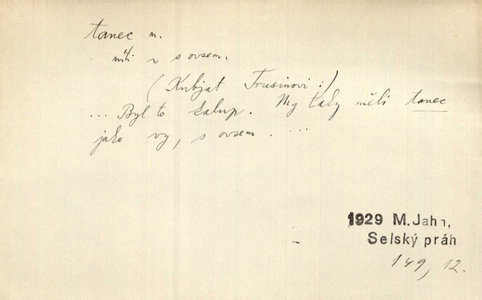 tanec m.
míti v s ovsem.
(Kubjat Trusinovi:)
... Byl to šalup. My tady měli tanec
jako vy, s ovsem. ...
1929 M. Jahn,
Selský práh
149, 12.